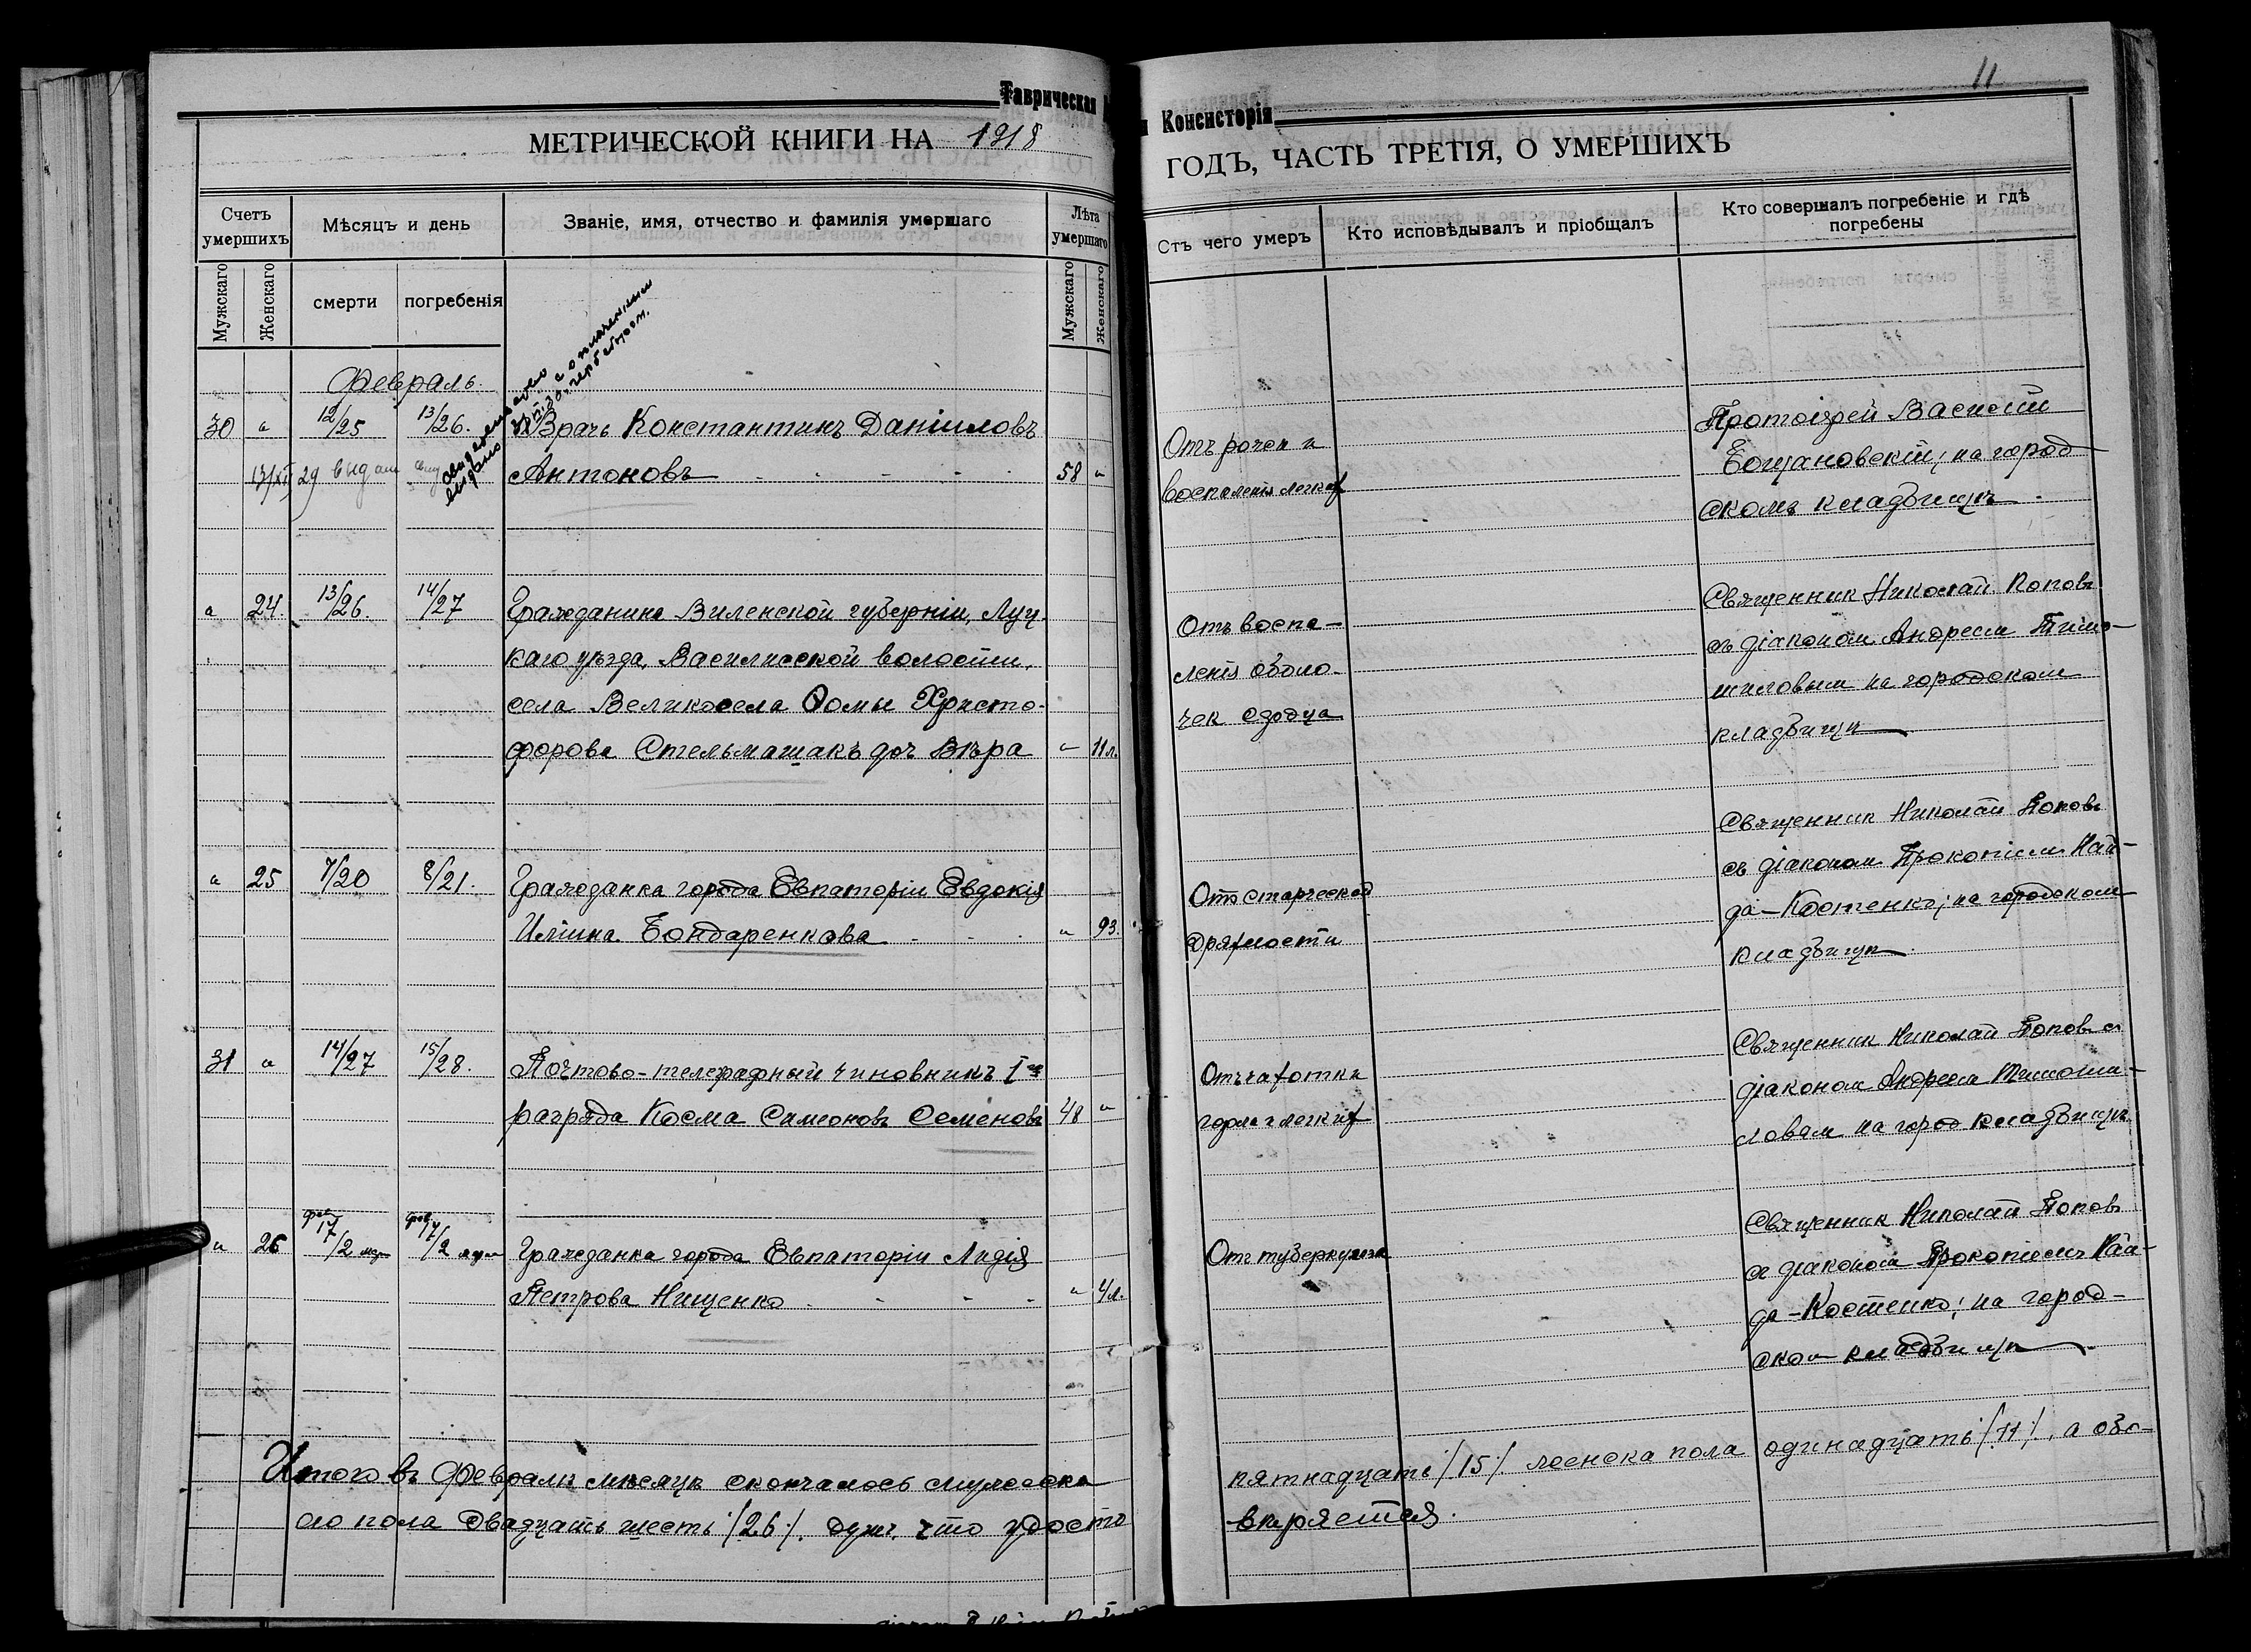 Таврическая
Консисторія
11
МЕТРИЧЕСКОЙ КНИГИ НА 1918
ГОДЪ, ЧАСТЬ ТРЕТІЯ, О УМЕРШИХЪ
Счетъ умершихъ
Мѣсяцъ и день
Званіе, имя, отчество и фамилія умершаго
Лѣта умершаго
Мужскаго
Женскаго
смерти
погребенія
Мужскаго
Женскаго
Стъ чего умеръ
Кто исповѣдывалъ и пріобщалъ
Кто совершалъ погребеніе и гдѣ
погребены
Февраль.
30 " 12/25 13/26. Врачъ Константинъ Даніиловъ
29 выдан
Антоновъ 58 "
выдано
Отъ рожи и
воспаленія легких
Протоіерей Василій
на город
скомъ кладбищѣ
" 24. 13/26. 14/27 Гражданина Виленской губерніи, Луц
каго уѣзда, Василисской волости,
села Великосела Ѳомы Христо-
форова Стельмашакъ доч Вѣра " 11 л.
Отъ воспа-
ленія оболо-
чек сердца
Священник Николай Поповъ
съ діаконом Андреем Тимо-
шиловым на городском
кладбищѣ
" 25 7/20 8/21. Гражданка города Евпаторіи Евдокія
Иліина Бондаренкова " 93.
Отъ старческой
дряхлости
Священник Николай Поповъ
съ діаконом Прокопіем Най-
да-Костенко; на городском
кладбищѣ
31 " 14/27 15/28. Почтово-телеграфный чиновникъ 1го
разряда Косма Симеоновъ Семеновъ 48 "
Отъ чахотки
горла и легких
Священник Николай Поповъ с
діаконом Андреем Тимоши-
ловым на город кладбищѣ
" 26 фев 17/2 мар фев 17/2 мар Гражданка города Евпаторіи Лидія
Петрова Нищенко " 4 л.
Отъ туберкулеза
Священник Николай Поповъ
с діаконом Прокопіемъ Най-
да-Костенко; на город-
ском кладбищѣ
Итого въ Февралѣ мѣсяцѣ скончалось мужеска
пятнадцать /15/. женска пола одинадцать /11/, а обо-
его пола двадцать шесть /26/. душъ, что удосто
вѣряется.